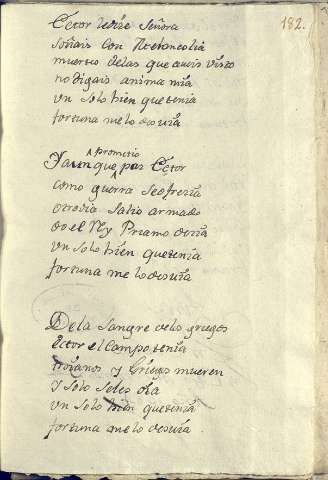 182.
Ector le dize Señora
soñais con Melancolia
muerto delas que aueis visto
no digais anima mia
vn solo bien que tenia
fortuna me lo desuia
Y aunque prometio Ector
como guerra se ofrezia
otro dia Salio armado
do el Rey Priamo
vn solo bien que tenia
fortuna me lo desuia
De la sangre delos griegos
ector el campo tenia
troianos y Griegos mueren
y solo
vn solo bien que tenia
fortuna me lo desuia.